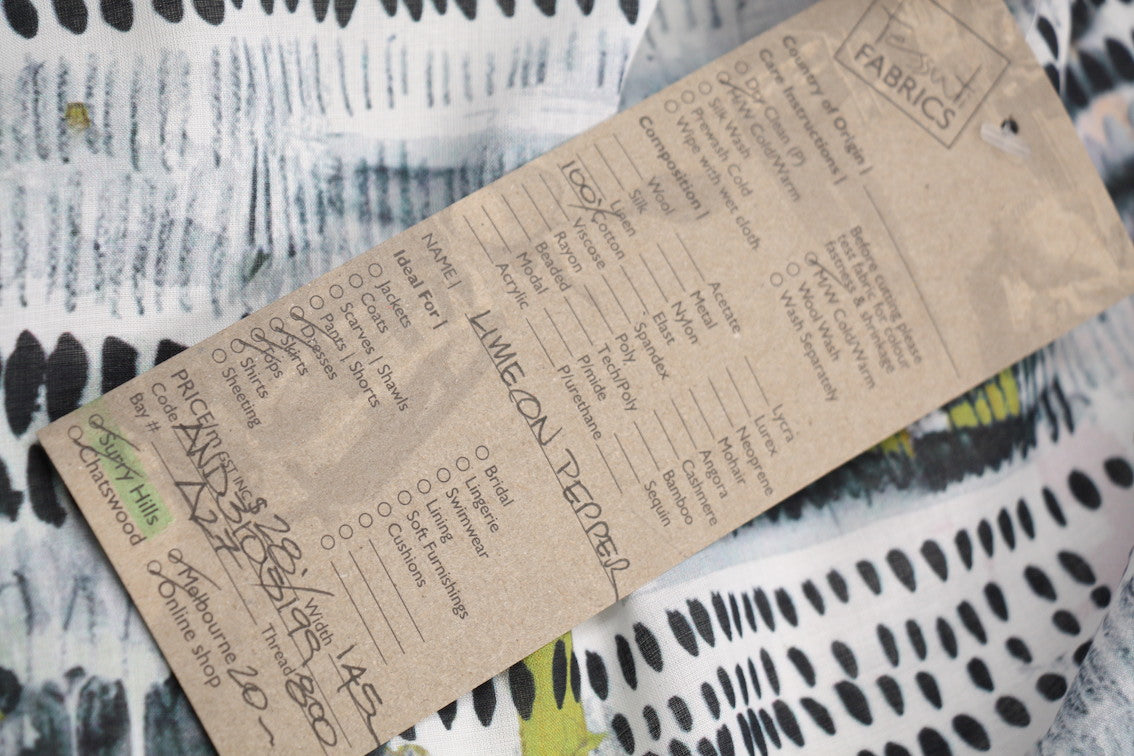 Tessuti
FABRICS
Country of Origin |
Care Instructions |
Dry Clean (P)
M/W Cold/Warm
Silk Wash
Prewash Cold
Wipe with wet cloth
Before cutting please
test fabric for colour
fastness & shrinkage
M/W Cold/Warm
Wool Wash
Wash Separately
Composition |
Wool
Silk
Linen
100% Cotton
Viscose
Rayon
Beaded
Modal
Acrylic
Acetate
Metal
Nylon
Elast
Spandex
Poly
Tech/Poly
P/mide
P/urethane
Lycra
Lurex
Neoprene
Mohair
Angora
Cashmere
Bamboo
Sequin
NAME | LIMECON PEPPER
Ideal For |
Jackets
Coats
Scarves | Shawls
Pants | Shorts
Dresses
Skirts
Tops
Shirts
Sheeting
Bridal
Lingerie
Swimwear
Lining
Soft Furnishings
Cushions
PRICE/m EST INC $ 28.- Width 145
Code Thread 800
Bay # A27
Surry Hills
Chatswood
Melbourne 20-
Online shop